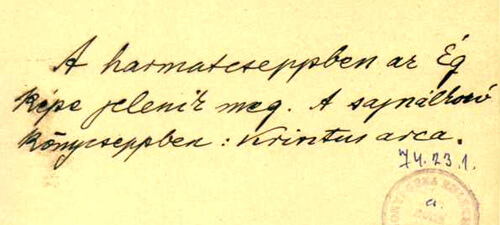 A harmatcseppben az Ég
képe jelenik meg. A sajnálkozó
könycseppben : Krisztus arca.
74.23.1.
a.